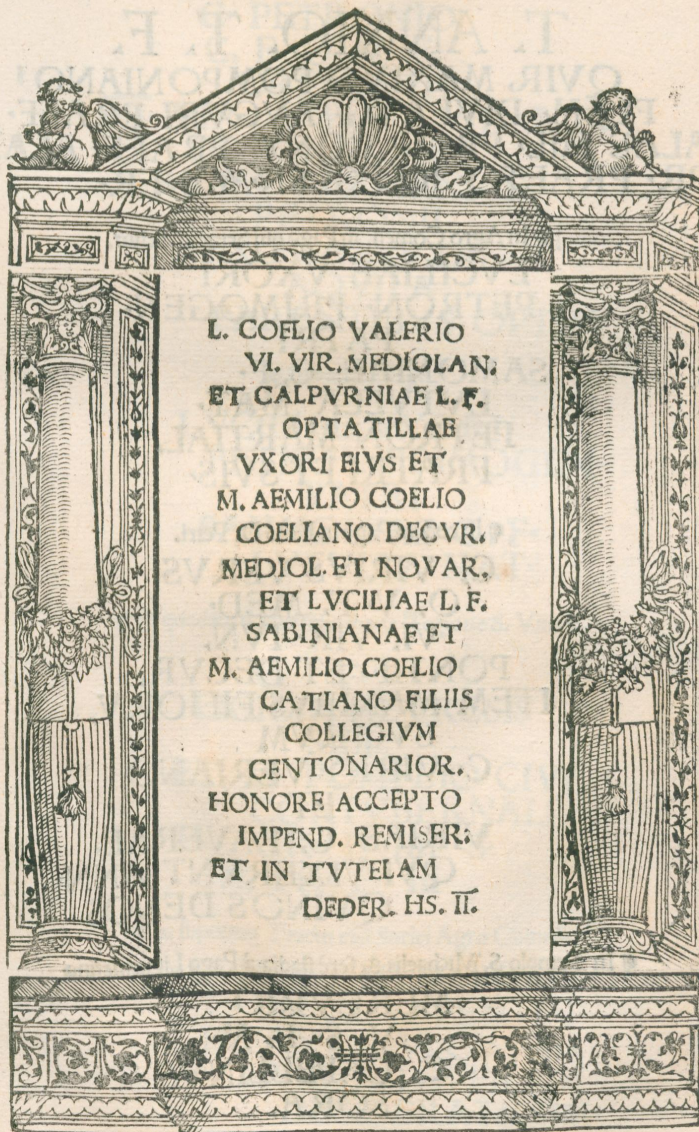 L. COELIO VALERIO
VI. VIR. MEDIOLAN.
ET CALPVRNIAE L. F.
OPTATILLAE
VXORI EIVS ET
M. AEMILIO COELIO
COELIANO DECVR.
MEDIOL. ET NOVAR.
ET LVCILIAE L. F.
SABINIANAE ET
M. AEMILIO COELIO
CATIANO FILIIS
COLLEGIVM
CENTONARIOR.
HONORE ACCEPTO
IMPEND. REMISER:
ET IN TVTELAM
DEDER. HS. I̅I̅.